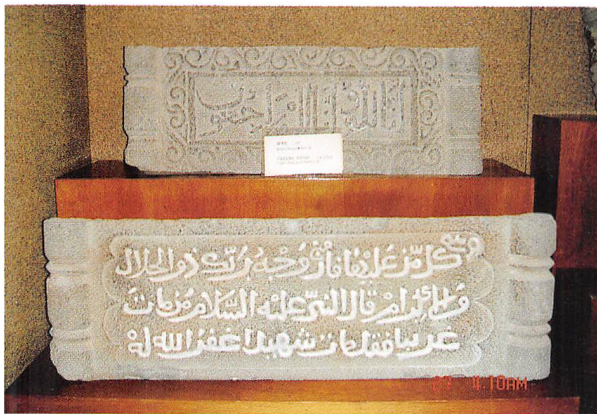 انا لله وانا اليه راجعون
كل من عليها فان ويبقى وجه ربك ذو الجلال
والاكرام قال النبي عليه السلام من مات
غريبا فقد مات شهيدا غفر الله له
07 4:10AM